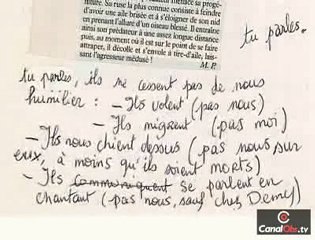 heure. Sa ruse la plus connue consiste à feindre
d'avoir une aile brisée et à s'éloigner de son nid
en prenant l'allure d'un oiseau blessé. Il entraîne
ainsi son prédateur à une assez longue distance
puis, au moment où il est sur le point de se faire
attraper, il décolle et s'envole à tire-d'aile, lais-
sant l'agresseur médusé !
M. P.
tu parles.
tu parles, ils ne cessent pas de nous
humilier : - Ils volent (pas nous)
- Ils migrent (pas moi)
- Ils nous chient dessus (pas nous sur
eux, à moins qu'ils soient morts)
- Ils communiquent se parlent en
chantant (pas nous, sauf chez Demy)
CanalObs.tv